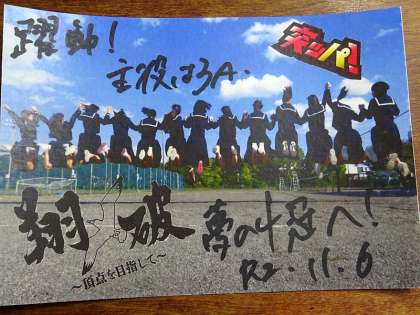 躍動!
突ッパ!
主役は3A.
翔破
夢の十冠へ!
〜頂点を目指して〜
R2.11.6